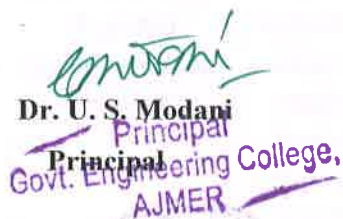 Dr. U. S. Modani
Principal
Principal
Govt. Engineering College,
AJMER